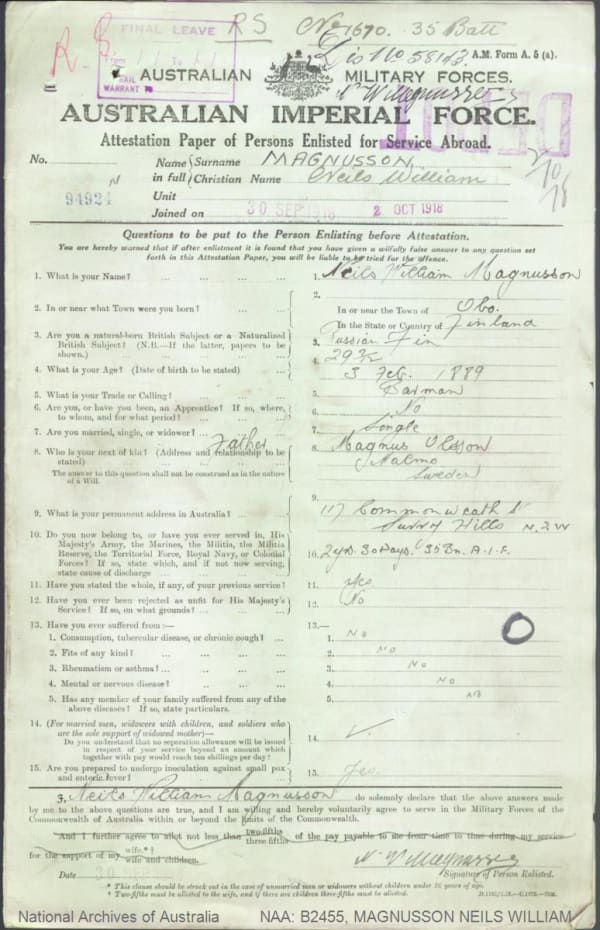 FINAL LEAVE
R.S.
RS
No 1670. 35 Batt
Dis No 58143.
A.M. Form A. 5 (a).
RAIL
WARRANT No
AUSTRALIAN MILITARY FORCES.
N. W. Magnusson
AUSTRALIAN IMPERIAL FORCE.
Attestation Paper of Persons Enlisted for Service Abroad.
No. 94924 N
Name in full { Surname MAGNUSSON
Christian Name Neils William
Unit
Joined on 30 SEP 1918 2 OCT 1918
Questions to be put to the Person Enlisting before Attestation.
You are hereby warned that if after enlistment it is found that you have given a wilfully false answer to any question set
forth in this Attestation Paper, you will be liable to be tried for the offence.
1. What is your Name? ... ... ... ... 1. Neils William Magnusson
2. In or near what Town were you born? ... ... 2. In or near the Town of Obo.
In the State or Country of Finland
3. Are you a natural-born British Subject or a Naturalized
British Subject? (N.B.—If the latter, papers to be
shown.) 3. Russian Fin
4. What is your Age? (Date of birth to be stated) ... 4. 29 7/12
3 Feb. 1889
5. What is your Trade or Calling? ... ... ... 5. Barman
6. Are you, or have you been, an Apprentice? If so, where,
to whom, and for what period? ... ... ... 6. No
7. Are you married, single, or widower? ... ... 7. Single
Father
8. Who is your next of kin? (Address and relationship to be
stated) 8. Magnus Olsson
Malmo
Sweden
The answer to this question shall not be construed as in the nature
of a Will.
9. What is your permanent address in Australia? ... 9. 117 Commonweath St
Surry Hills N.S.W
10. Do you now belong to, or have you ever served in, His
Majesty's Army, the Marines, the Militia, the Militia
Reserve, the Territorial Force, Royal Navy, or Colonial
Forces? If so, state which, and if not now serving,
state cause of discharge ... ... ... 10. 2 yrs. 30 days. 35 Bn. A.I.F.
11. Have you stated the whole, if any, of your previous service? 11. Yes
12. Have you ever been rejected as unfit for His Majesty's
Service? If so, on what grounds? ... ... ... 12. No
13. Have you ever suffered from :— 13.—
1. Consumption, tubercular disease, or chronic cough? ... 1. No
2. Fits of any kind? ... ... ... 2. No
3. Rheumatism or asthma? ... ... ... 3. No
4. Mental or nervous disease? ... ... ... 4. No
5. Has any member of your family suffered from any of the
above diseases? If so, state particulars. 5. No
14. (For married men, widowers with children, and soldiers who
are the sole support of widowed mother)—
Do you understand that no separation allowance will be issued
in respect of your service beyond an amount which
together with pay would reach ten shillings per day? 14.
15. Are you prepared to undergo inoculation against small pox
and enteric fever? ... ... ... 15. Yes.
I, Neils William Magnusson do solemnly declare that the above answers made
by me to the above questions are true, and I am willing and hereby voluntarily agree to serve in the Military Forces of the
Commonwealth of Australia within or beyond the limits of the Commonwealth.
And I further agree to allot not less than two-fifths three-fifths of the pay payable to me from time to time during my service
for the support of my wife.*† wife and children.
N. W. Magnusson
Date 30 SEP
Signature of Person Enlisted.
* This clause should be struck out in the case of unmarried men or widowers without children under 16 years of age.
† Two-fifths must be allotted to the wife, and if there are children three-fifths must be allotted.
National Archives of Australia NAA: B2455, MAGNUSSON NEILS WILLIAM